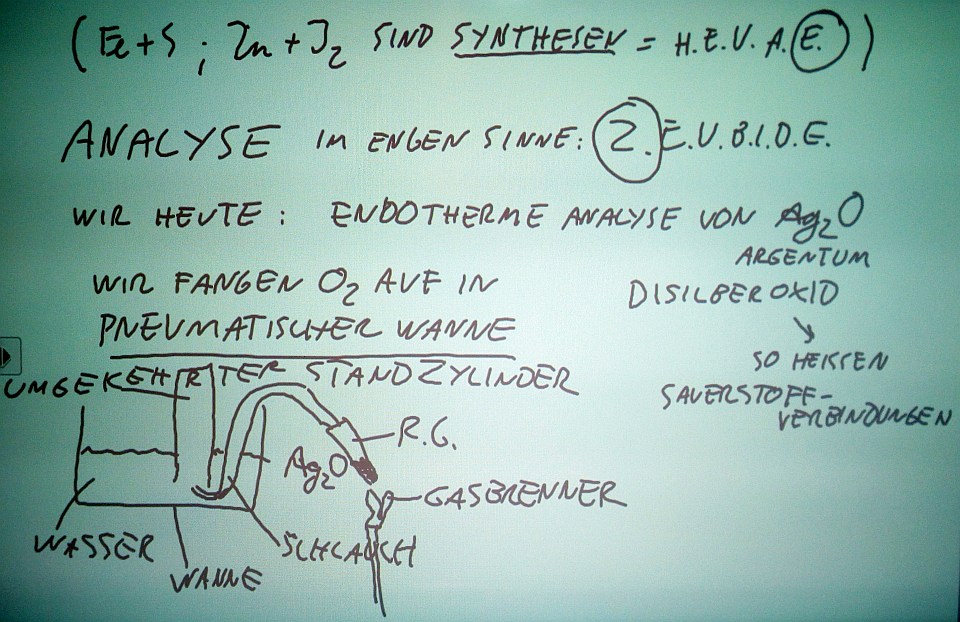 (Fe+S ; Zn + J2 SIND SYNTHESEN = H.E.U.A.E.)
ANALYSE IM ENGEN SINNE: Z.E.U.B.I.O.E.
WIR HEUTE : ENDOTHERME ANALYSE VON Ag2O
ARGENTUM
DISILBEROXID
SO HEISSEN
SAUERSTOFF-
VERBINDUNGEN
WIR FANGEN O2 AUF IN
PNEUMATISCHER WANNE
UMGEKEHRTER STANDZYLINDER
R.G.
Ag2O
GASBRENNER
WASSER
SCHLAUCH
WANNE